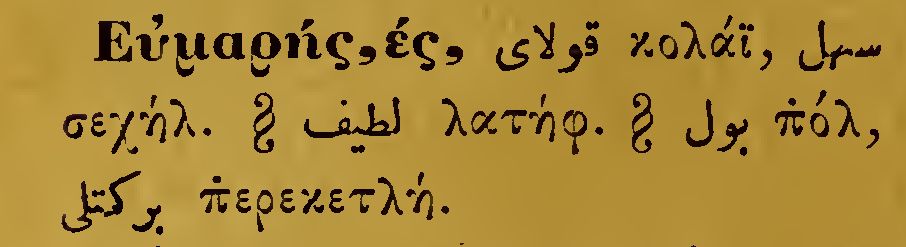 Εὐμαρής,ές, قولای κολάϊ, سهل
σεχήλ. § لطیف λατήφ. § بول π̇όλ,
برکتلی π̇ερεκετλή.